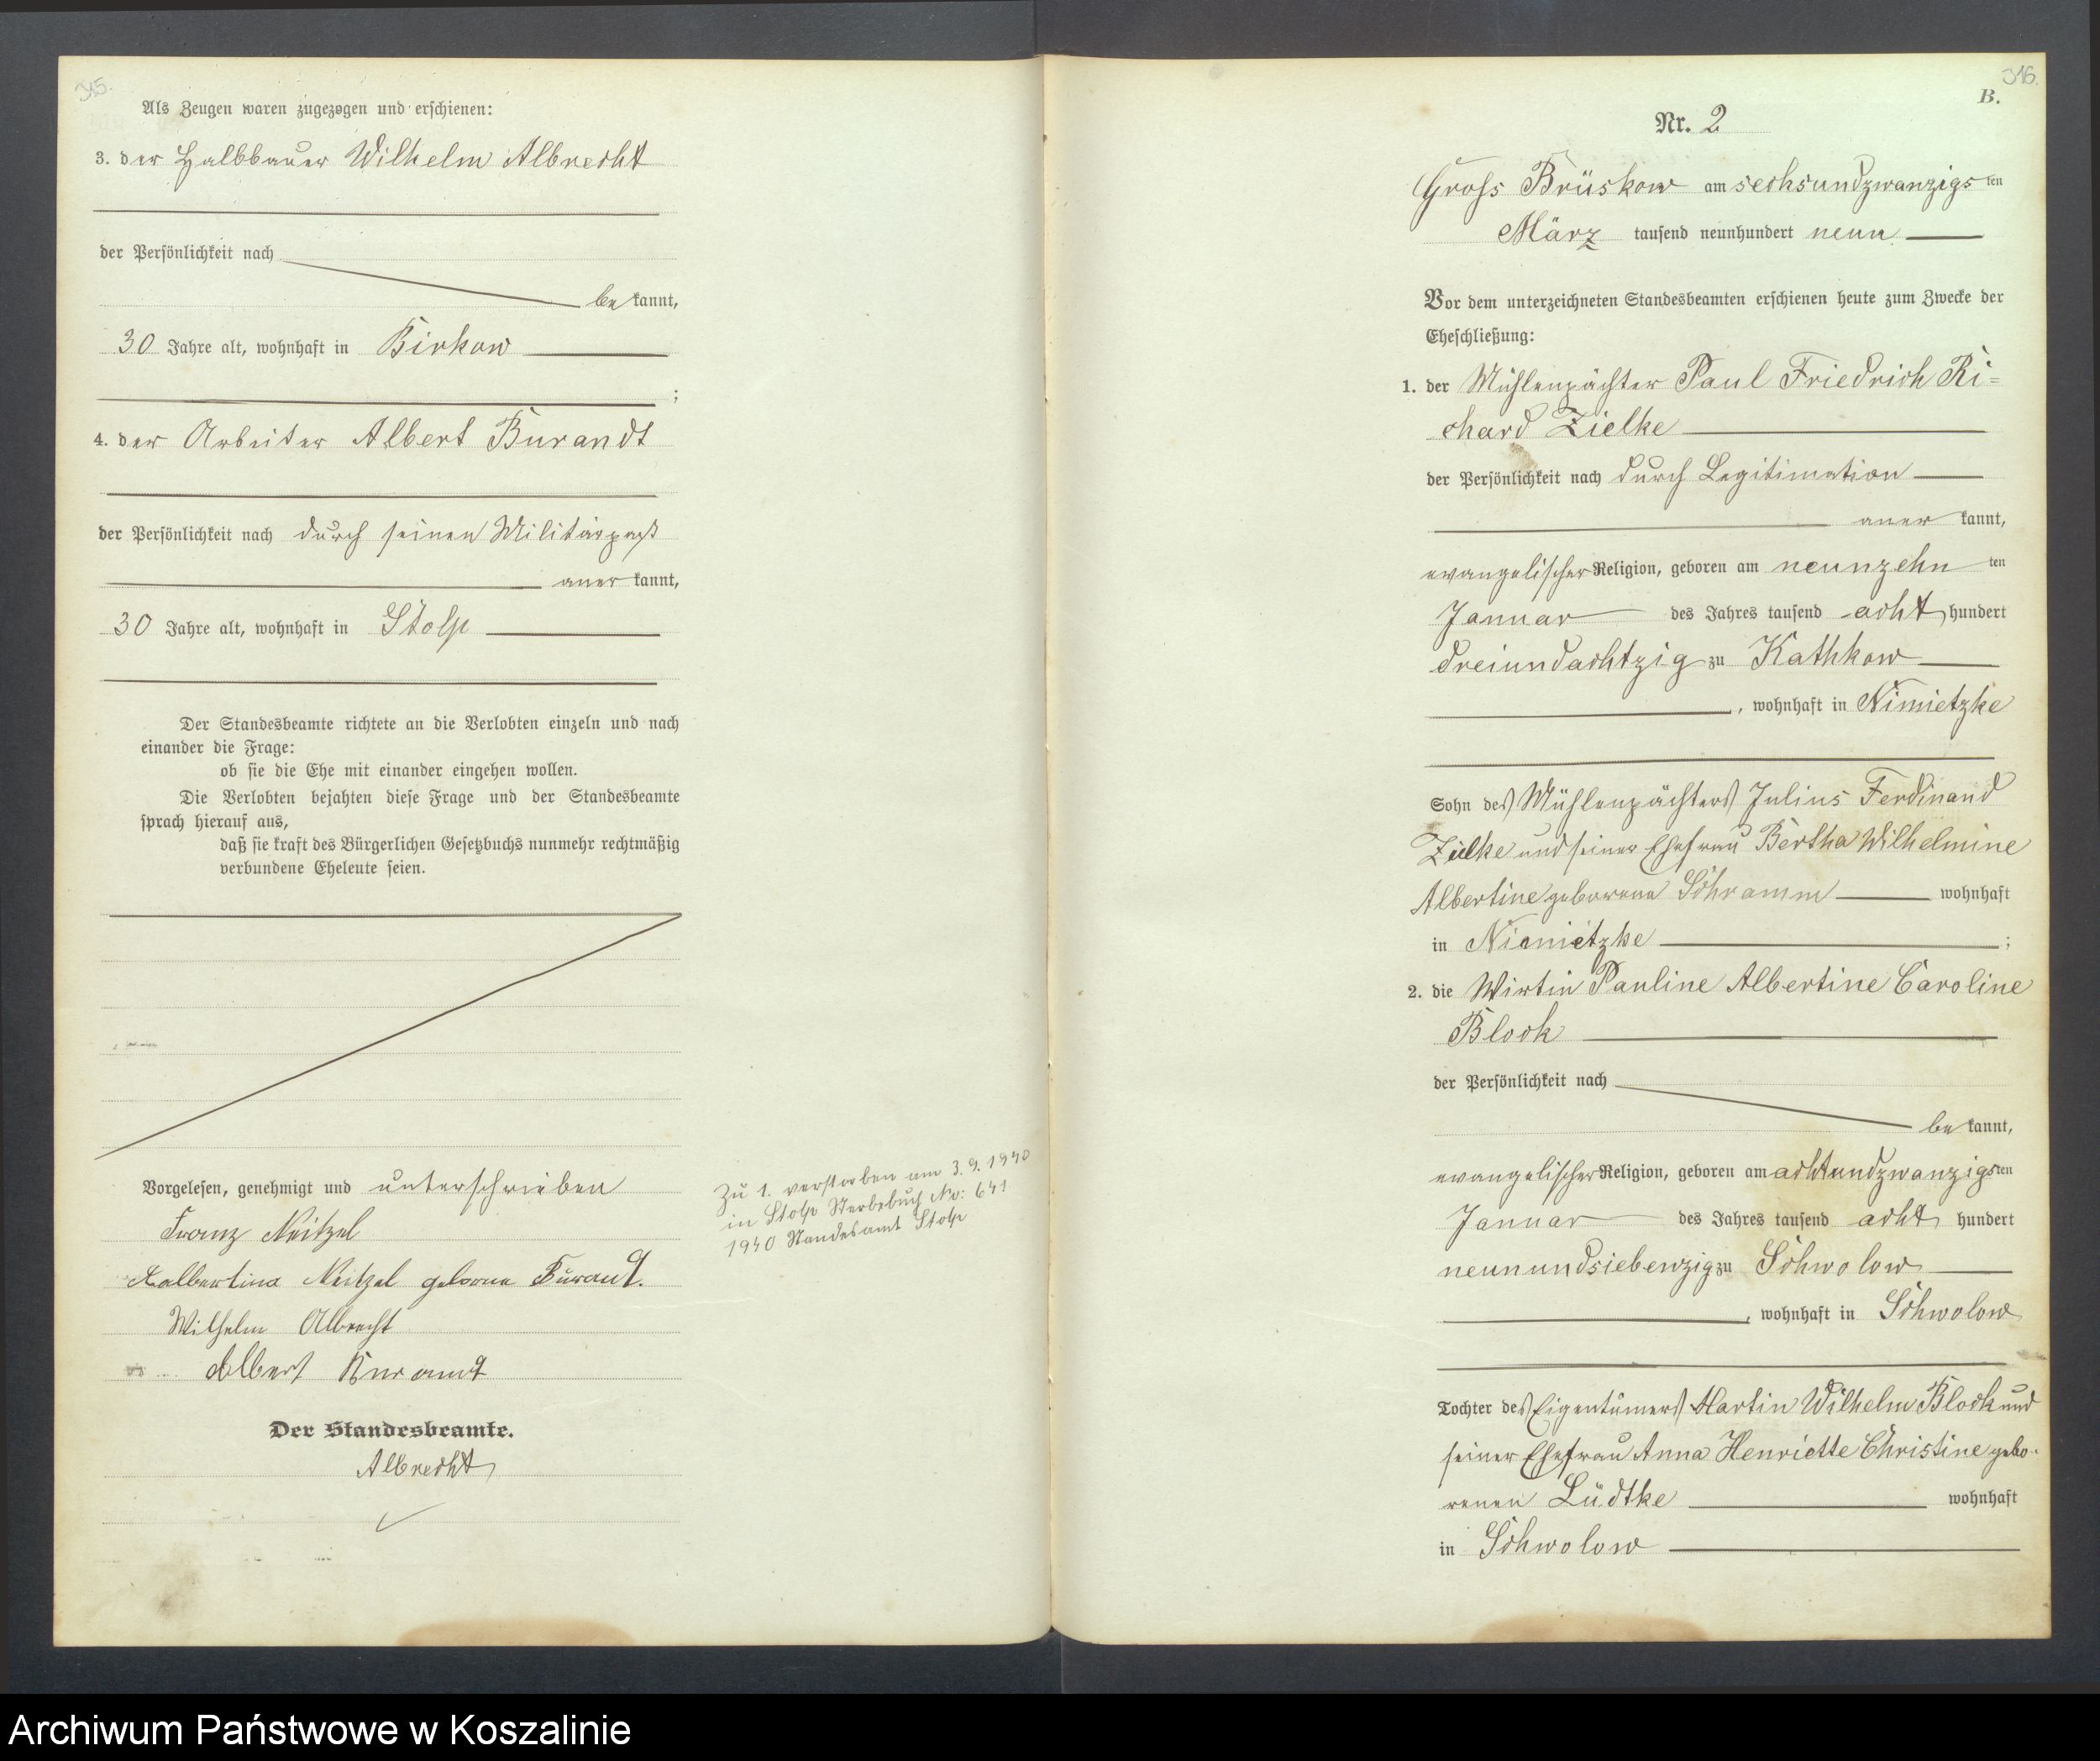 315.
Als Zeugen waren zugezogen und erschienen:
3. der Halbbauer Wilhelm Albrecht
der Persönlichkeit nach
be kannt,
30 Jahre alt, wohnhaft in Birkow
;
4. der Arbeiter Albert Burandt
der Persönlichkeit nach durch seinen Militärpaß
aner kannt,
30 Jahre alt, wohnhaft in Stolp
Der Standesbeamte richtete an die Verlobten einzeln und nach
einander die Frage:
ob sie die Ehe mit einander eingehen wollen.
Die Verlobten bejahten diese Frage und der Standesbeamte
sprach hierauf aus,
daß sie kraft des Bürgerlichen Gesetzbuchs nunmehr rechtmäßig
verbundene Eheleute seien.
Vorgelesen, genehmigt und unterschrieben
Franz Neitzel
Neitzel geborne
Wilhelm Albrecht
Albert
Der Standesbeamte.
Albrecht
Zu 1. verstorben am 3.9.1940
in Stolp Sterbebuch No: 641
1940 Standesamt Stolp
316.
B.
Nr. 2
Gross Brüskow am sechsundzwanzigs ten
März tausend neunhundert neun
Vor dem unterzeichneten Standesbeamten erschienen heute zum Zwecke der
Eheschließung:
1. der Mühlenpächter Paul Friedrich Ri=
chard Zielke
der Persönlichkeit nach durch Legitimation
aner kannt,
evangelischer Religion, geboren am neunzehn ten
Januar des Jahres tausend acht hundert
dreiundachtzig zu Kathkow
, wohnhaft in Nimietzke
Sohn des Mühlenpächters Julius Ferdinand
Zielke und seiner Ehefrau Bertha Wilhelmine
Albertine geborene Schramm wohnhaft
in Nimietzke ;
2. die Wirtin Pauline Albertine Caroline
Block
der Persönlichkeit nach
be kannt,
evangelischer Religion, geboren am achtundzwanzigs ten
Januar des Jahres tausend acht hundert
neunundsiebenzig zu Schwolow
, wohnhaft in Schwolow
Tochter des Eigentümers Martin Wilhelm Block und
seiner Ehefrau Anna Henriette Christine gebo-
renen Lüdtke wohnhaft
in Schwolow
Archiwum Państwowe w Koszalinie